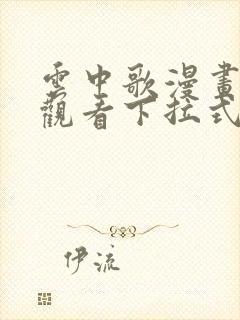 雲中歌漫畫
觀看下拉式
伊流